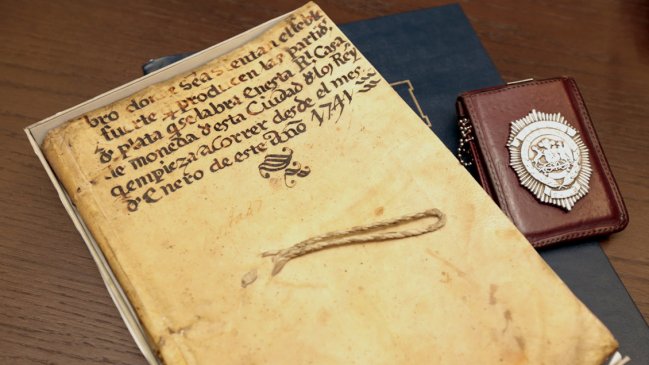 bro donde se asientan el feble
fuerte q produçen las partidas
de plata q se labra en esta Rl Casa
de moneda de esta Ciudad de los Reys
q empieza a Correr desde el mes
de Enero de este año 1741